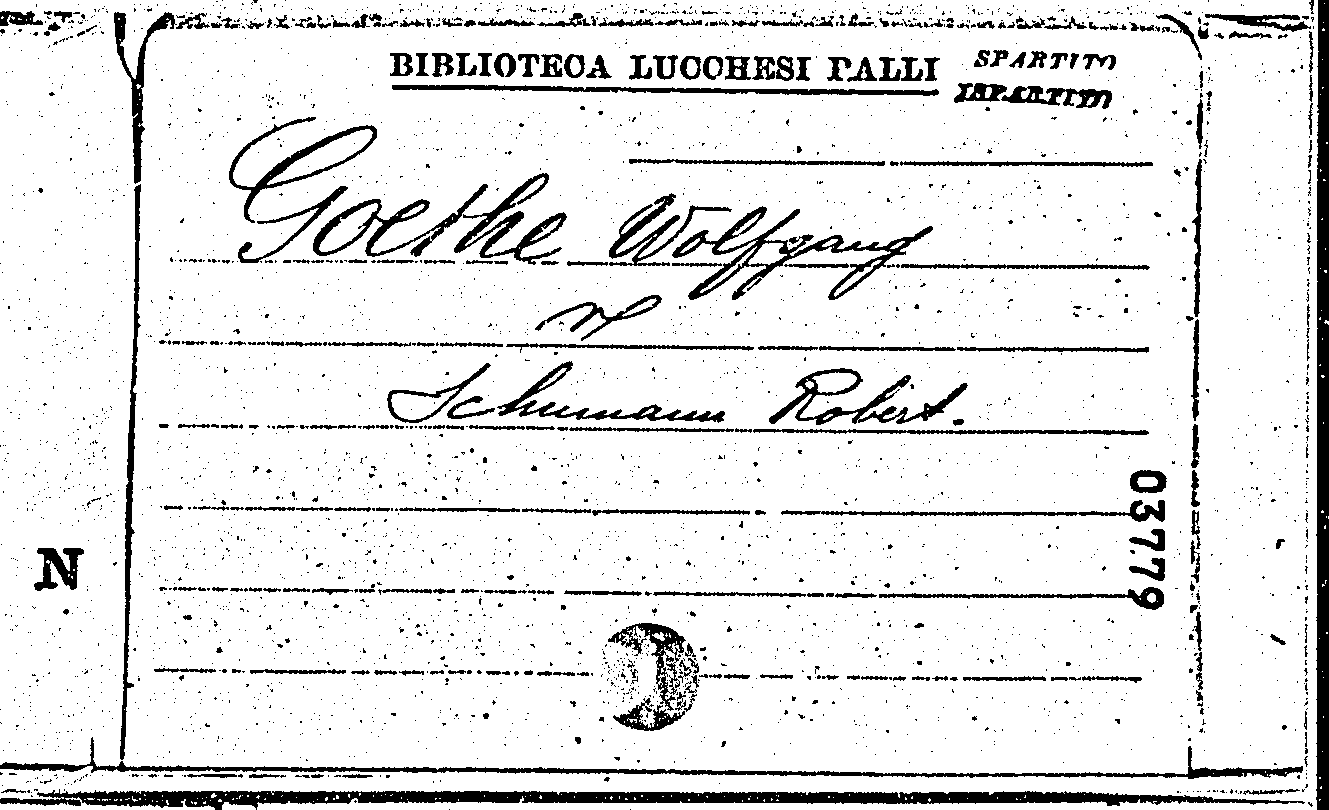 BIBLIOTECA LUCCHESI PALLI
SPARTITO
Goethe Wolfgang
v
Schumann Robert.
03779
N